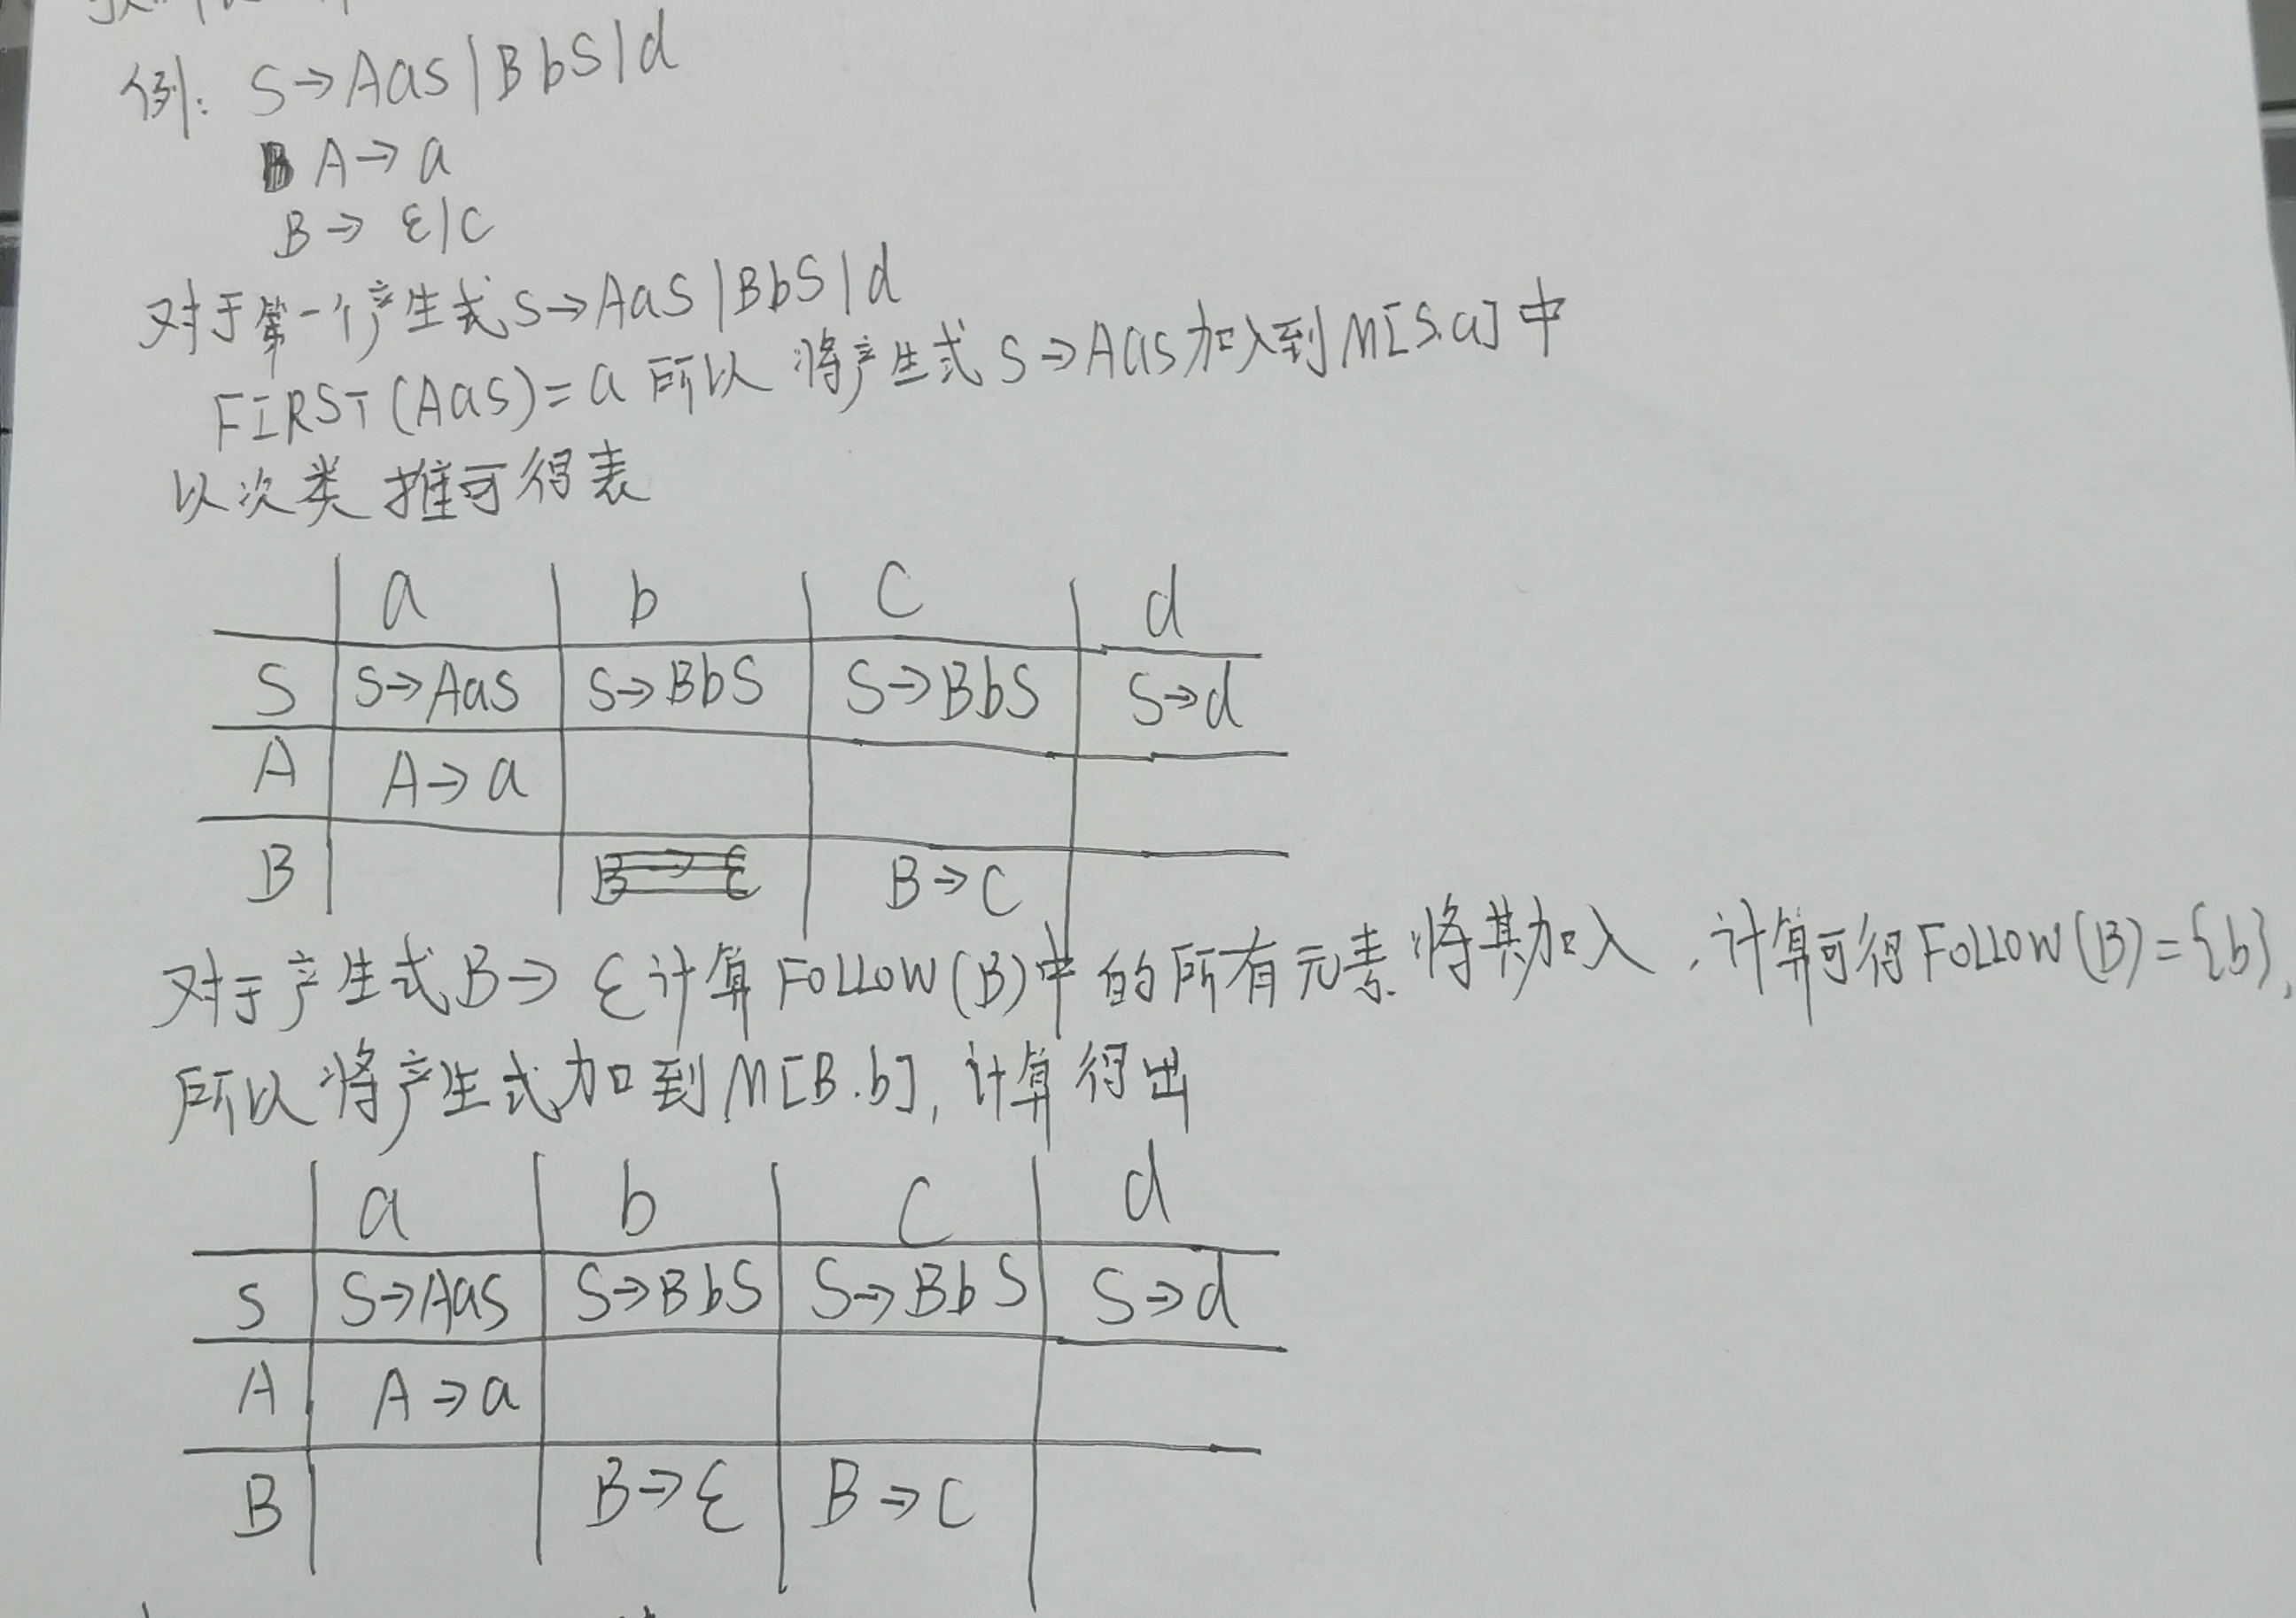 例: S→AaS|BbS|d
A→a
B→ ε|c
对于第一个产生式S→AaS|BbS|d
FIRST(AaS)=a 所以 将产生式 S→AaS加入到M[S.a]中
以次类推可得表
a b c d
S S→AaS S→BbS S→BbS S→d
A A→a
B B→ε B→c
对于产生式B→ε计算FOLLOW(B)中的所有元素.将其加入,计算可得FOLLOW(B)={b},
所以将产生式加到M[B.b],计算得出
a b c d
S S→AaS S→BbS S→BbS S→d
A A→a
B B→ε B→c